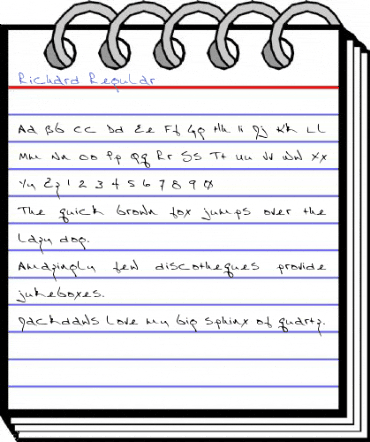 Richard Regular
Aa Bb Cc Dd Ee Ff Gg Hh Ii Jj Kk Ll
Mm Nn Oo Pp Qq Rr Ss Tt Uu Vv Ww Xx
Yy Zz 1 2 3 4 5 6 7 8 9 0
The quick brown fox jumps over the
Lazy dog.
Amazingly few discotheques provide
jukeboxes.
Jackdaws Love my big sphinx of quartz.